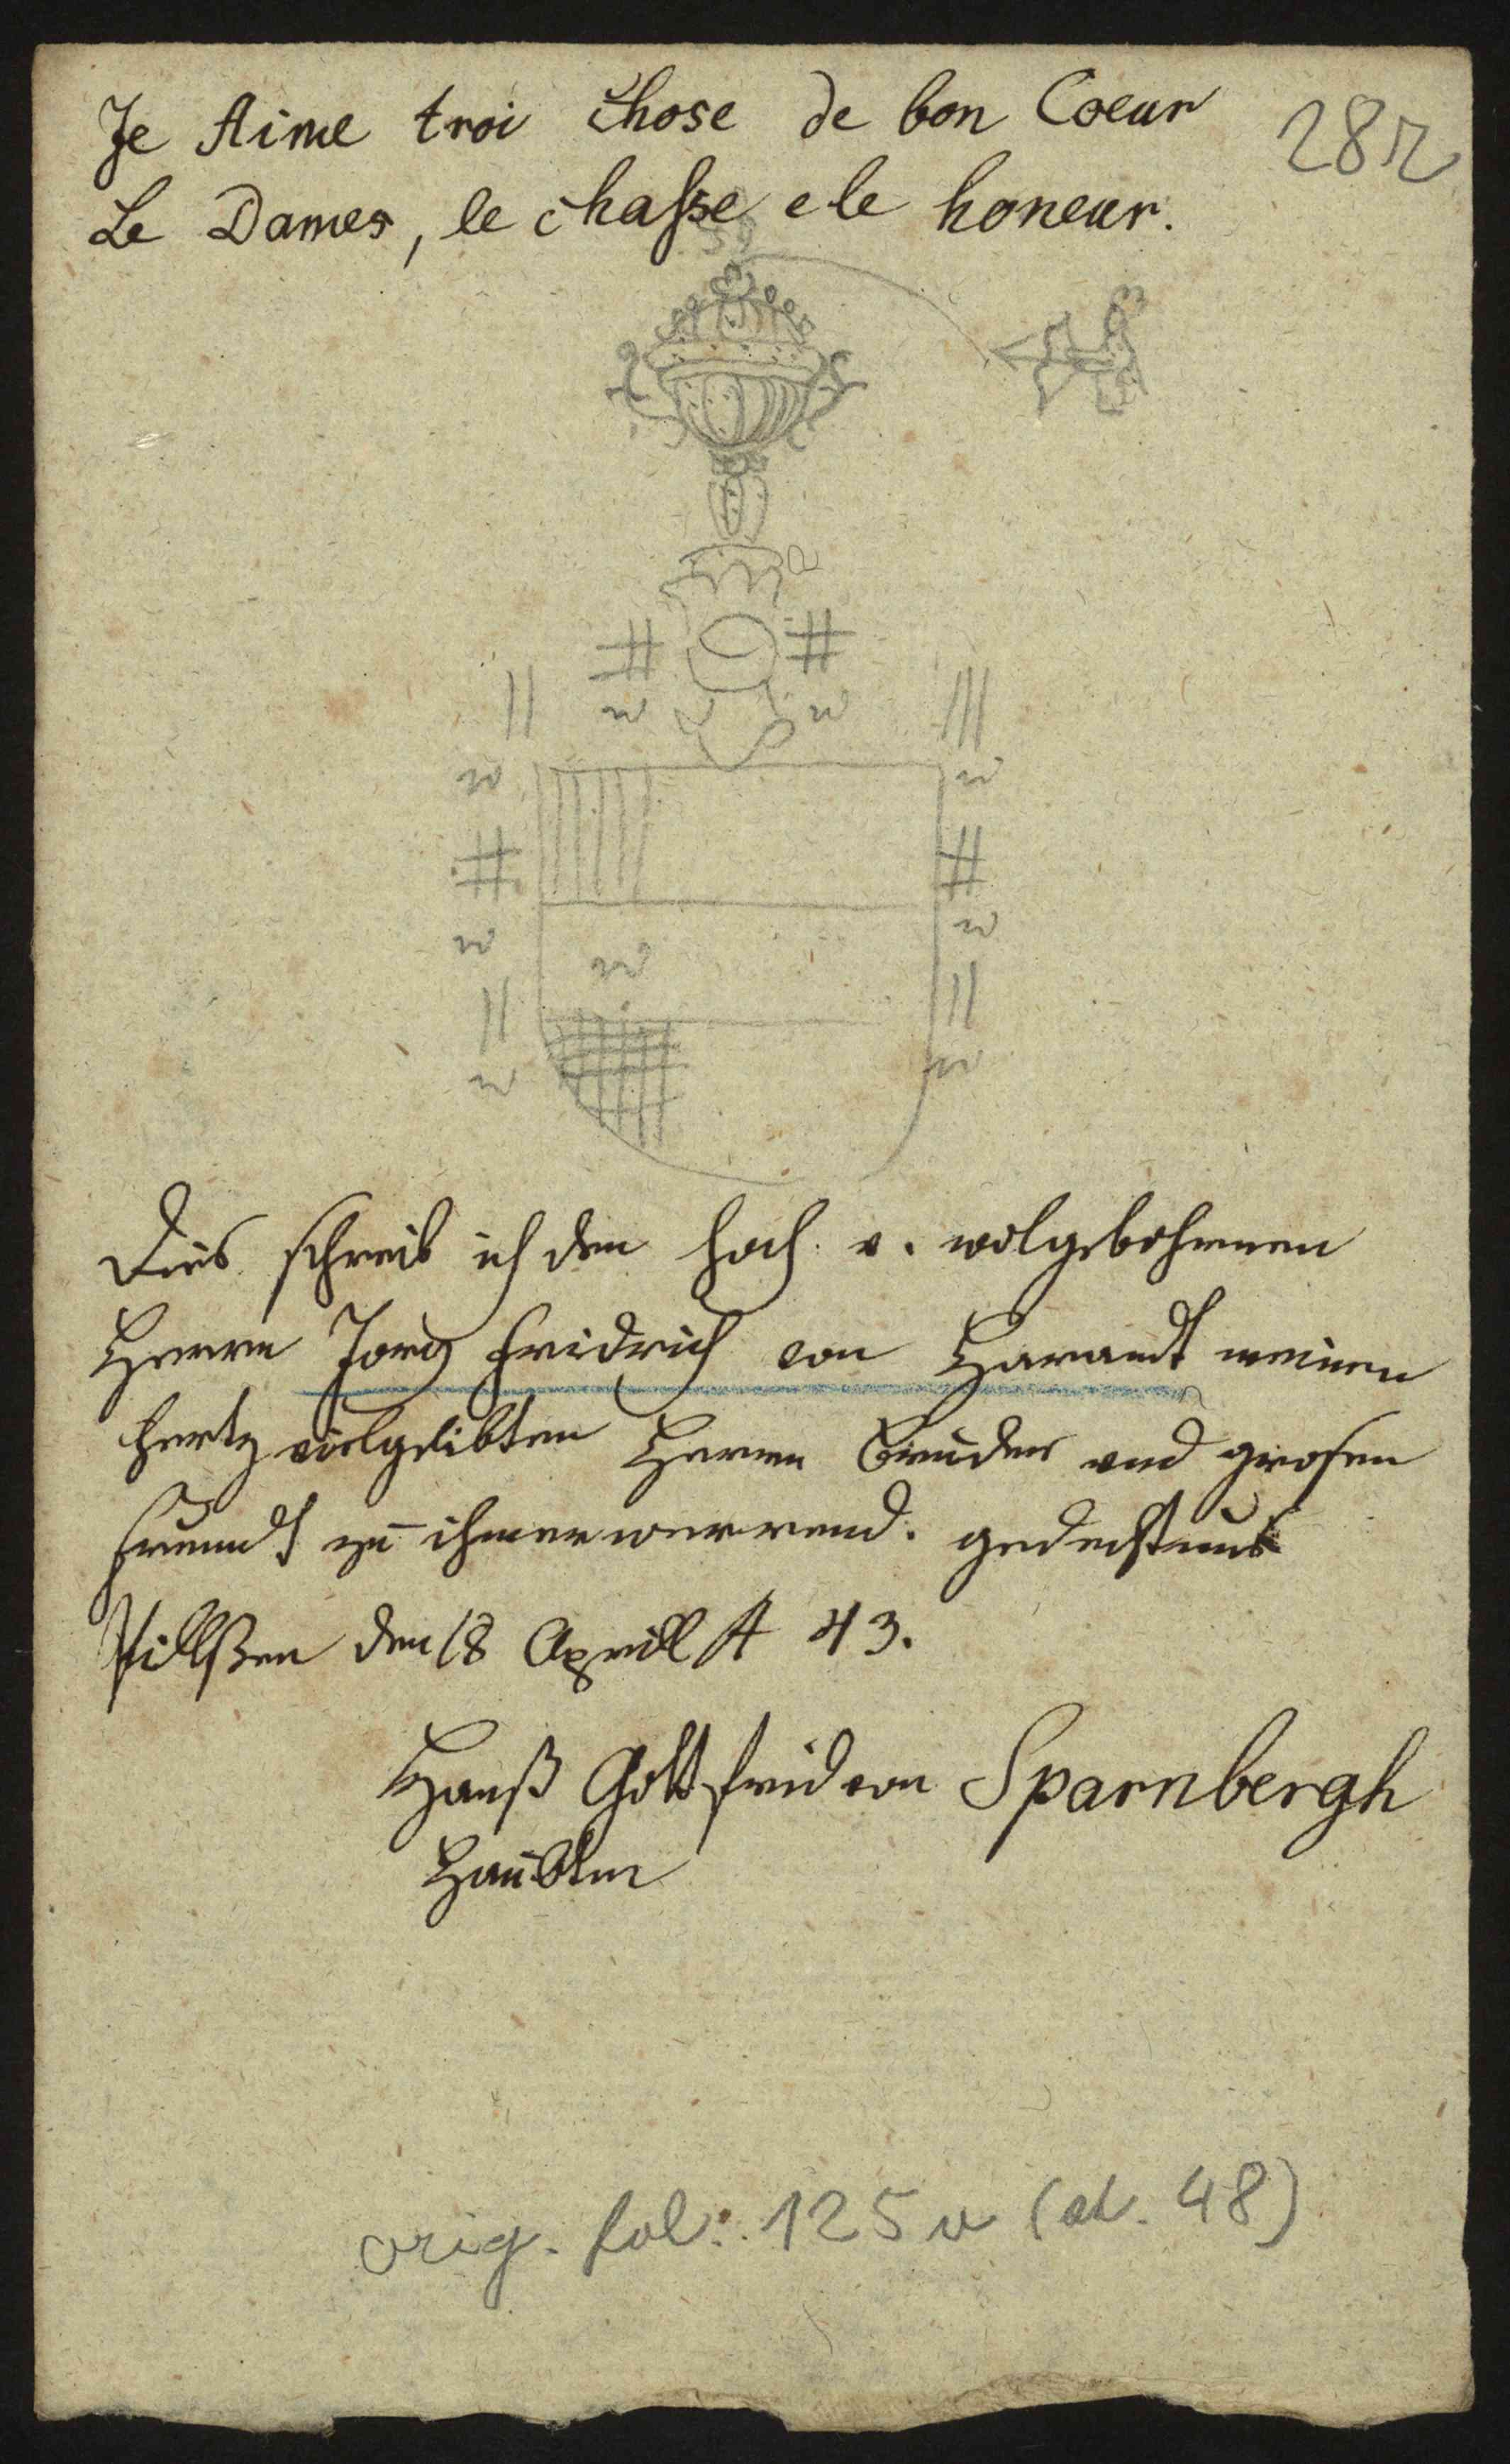 Je Aime troi chose de bon Coeur
282
Le Dames, le chasse e le honeur.
a
w w
w w
w w
w
w w
Dies schreib ich dem hoch. v. wolgebohrnen
Herrn Jorg Fridrich von Harandt meinen
hertz vielgelibten Herrn Bruder und grosen
freundt zu ihmerwerrend. gedechtnus
Pillßen den 18 Aprill A 43.
Hanß Gottfrid von Sparnbergh
Haubtm
orig. fol. 125 v (al. 48)